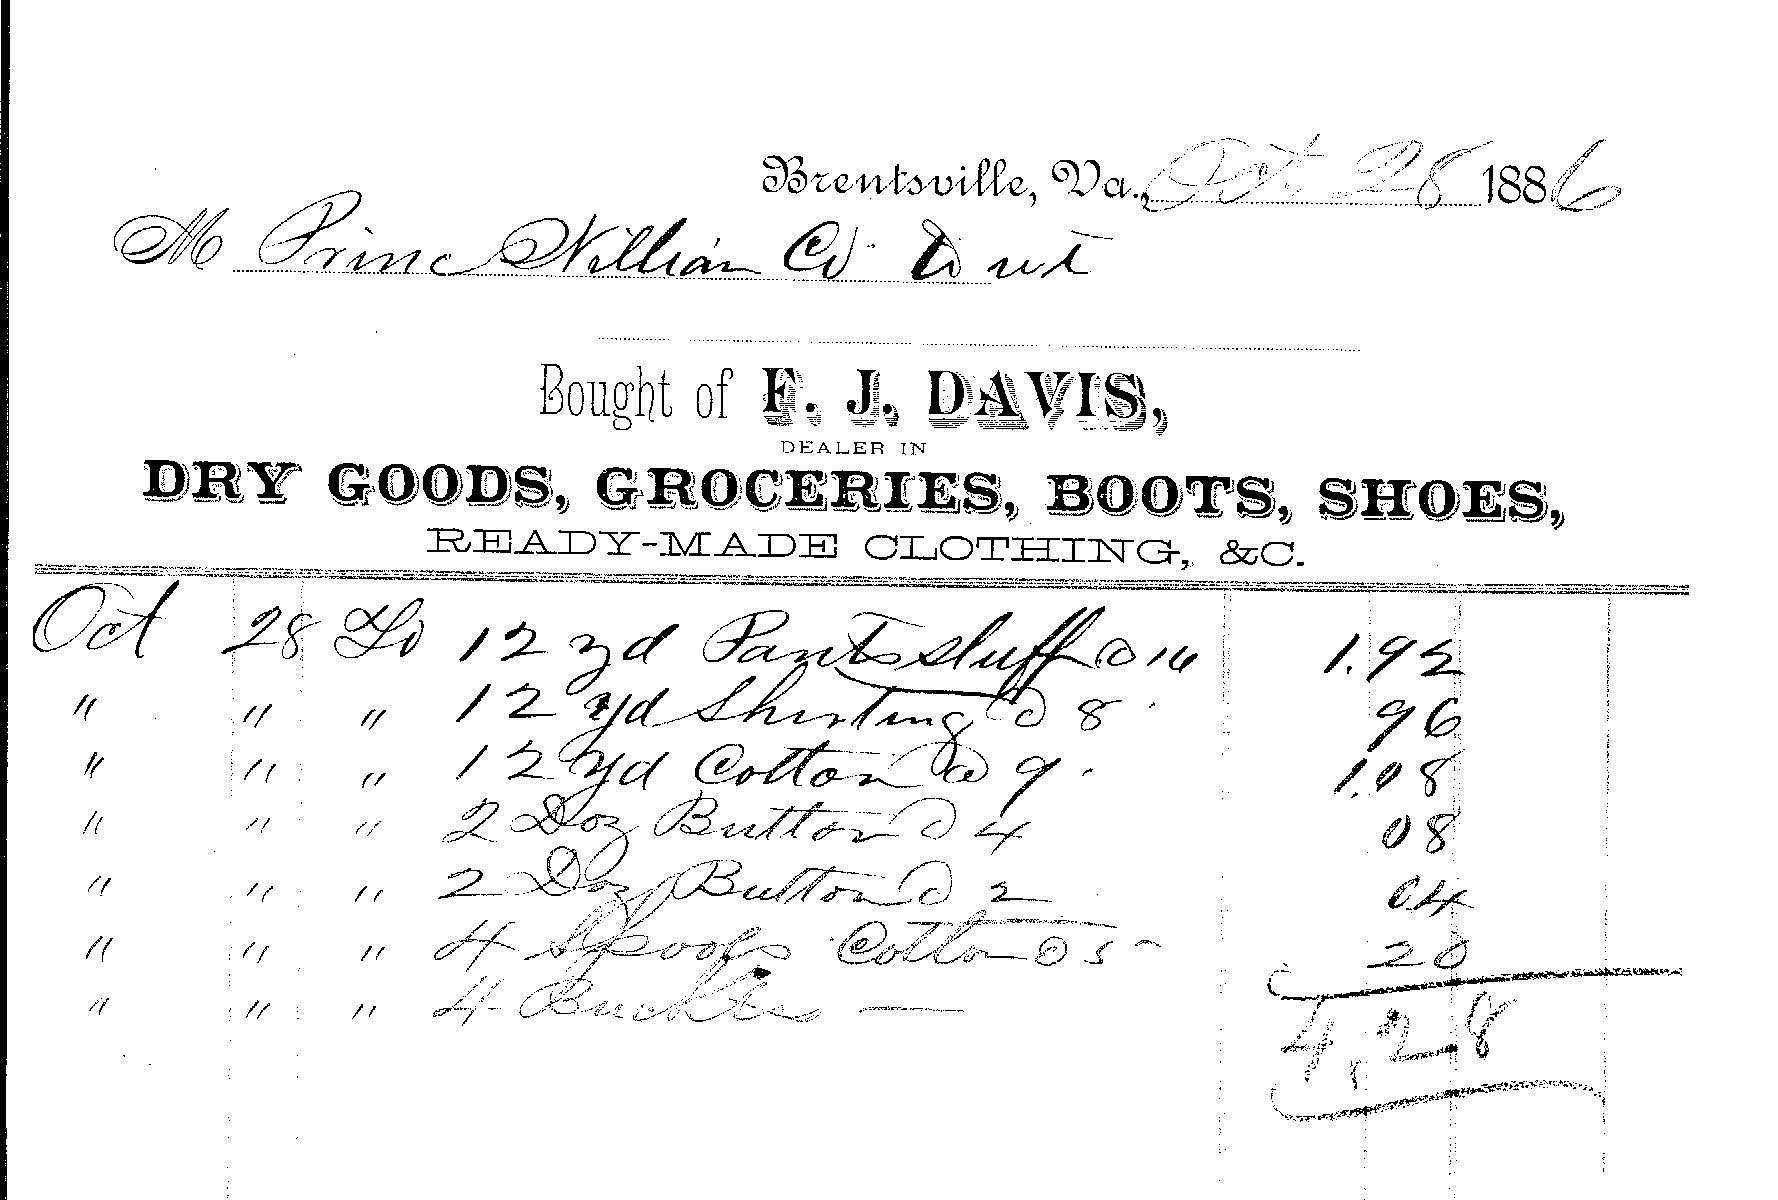 Brentsville, Va., Oct. 28 1886
M Prince William Co Dr
Bought of F. J. DAVIS,
DEALER IN
DRY GOODS, GROCERIES, BOOTS, SHOES,
READY-MADE CLOTHING, &C.
Oct 28 To 12 yd Pants stuff @ 16 1.92
" " " 12 yd Shirting @ 8 96
" " " 12 yd Cotton @ 9 1.08
" " " 2 Doz Button @ 4 08
" " " 2 Doz Button @ 2 04
" " " 4 Spools Cotton @ 5 20
" " " 4 Buckles —
4,28